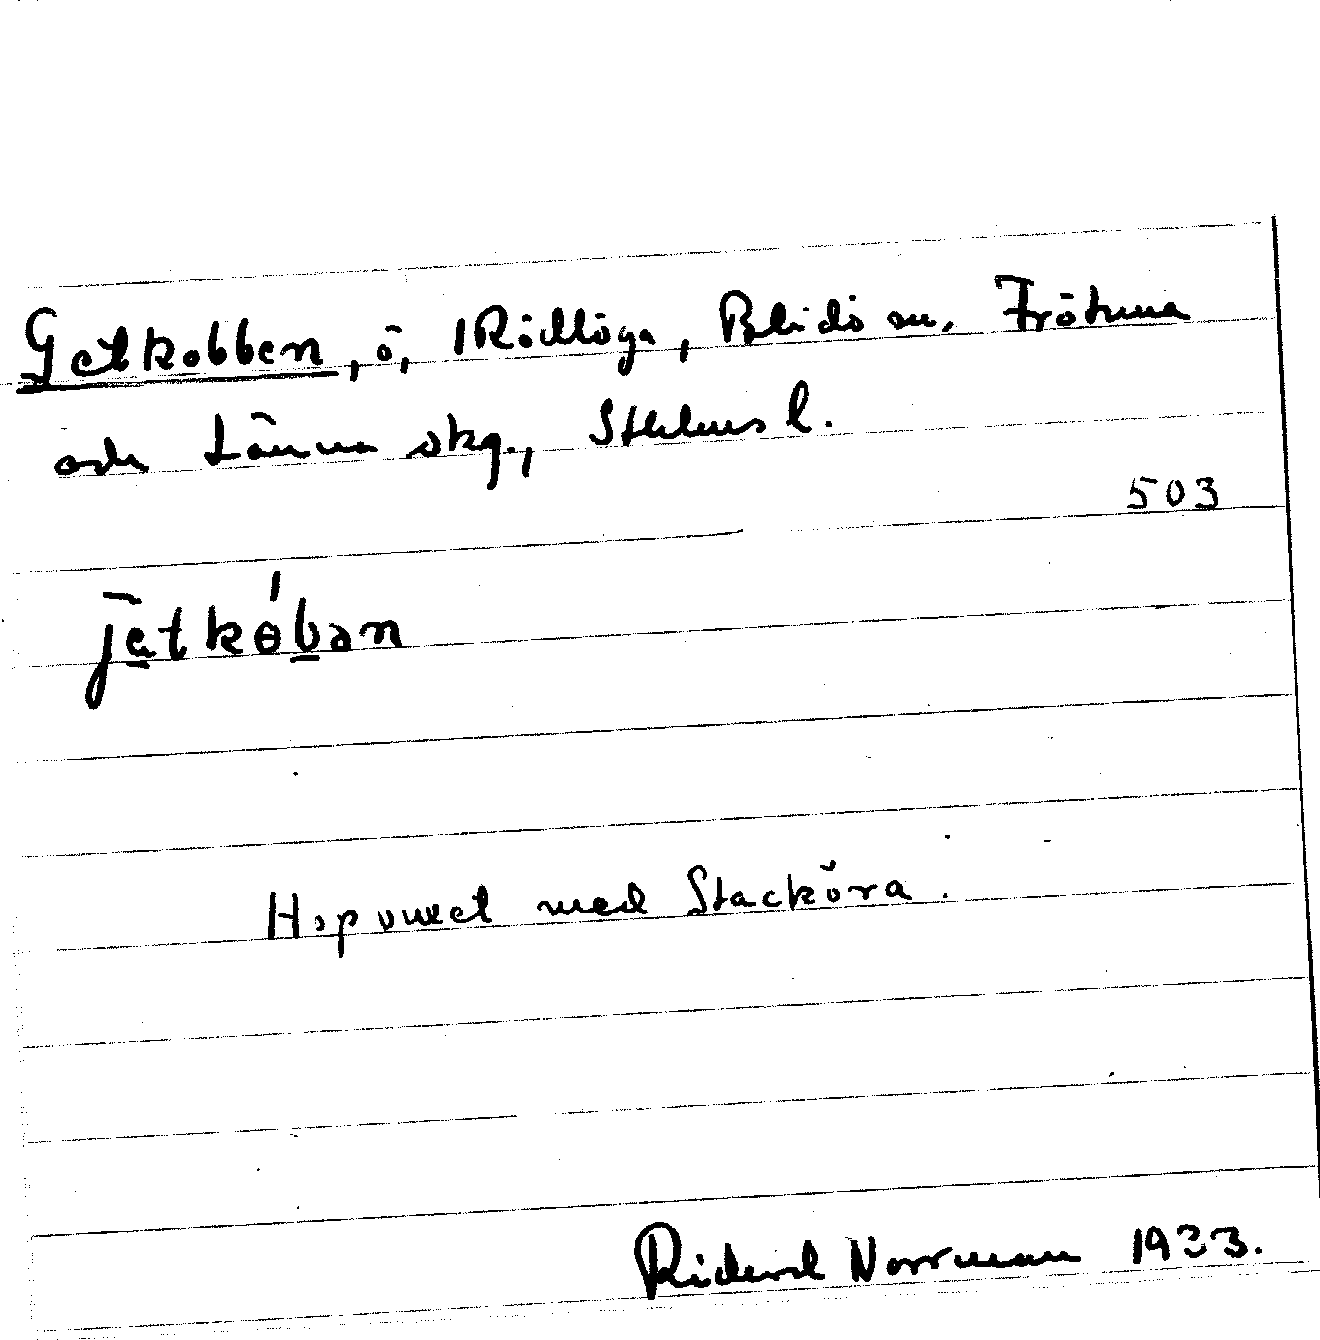 Getkobben, ö, Rödlöga, Blidö sn, Frötuna
och Länna skg., Sthlms l.
503
jetkɵ́bən
Hopvuxet med Stacköra.
Rickard Norrman 1933.